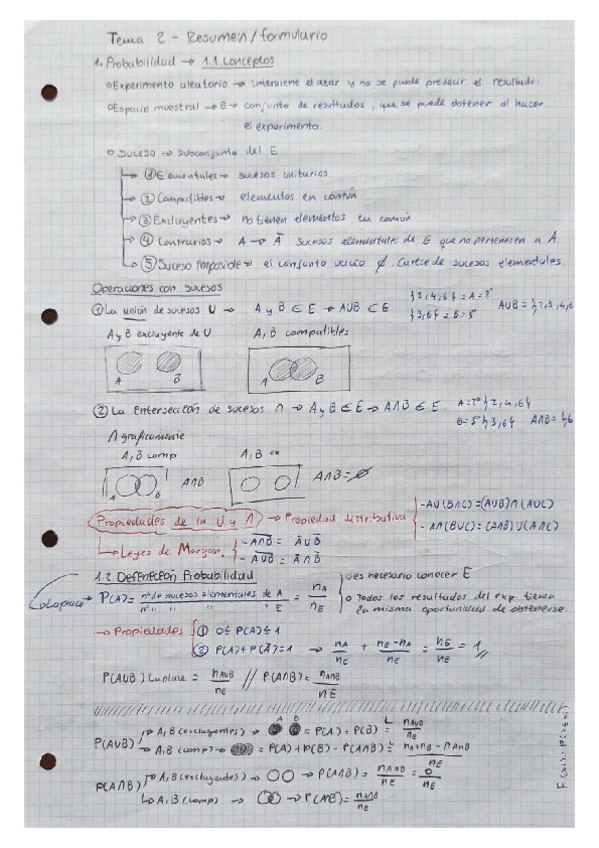 Tema 2 - Resumen/formulario
1. Probabilidad → 1.1 conceptos
o Experimento aleatorio → interviene el azar y no se puede predecir el resultado.
o Espacio muestral → E → conjunto de resultados, que se puede obtener al hacer
el experimento.
o Suceso → subconjunto del E
→ ① Elementales → sucesos unitarios
→ ② Compatibles → elementos en común
→ ③ Excluyentes → no tienen elementos en común
→ ④ Contrarios → A → Ā sucesos elementales de E que no pertenecen a A
→ ⑤ Suceso imposible → el conjunto vacío ∅. Carece de sucesos elementales.
Operaciones con sucesos
① La unión de sucesos U → A y B ∈ E → AUB ∈ E
{2,4,6} = A = 2º
{3,6} = B = 3º
AUB = {2,3,4,6
A y B excluyente de U
A, B compatibles
A B
A B
② La intersección de sucesos ∩ → A y B ∈ E → A∩B ∈ E
A = 2º {2,4,6}
B = 3º {3,6} A∩B = {6
∩ graficamente
A, B comp
A, B ex
A B A∩B
A∩B = ∅
Propiedades de la U y ∩ → Propiedad distributiva
- AU(B∩C) = (AUB)∩(AUC)
- A∩(BUC) = (A∩B)U(A∩C)
→ Leyes de Morgan
1.2 Definición Probabilidad
Laplace
P(A) = nº de sucesos elementales de A / nº " " " E = nA / nE
o es necesario conocer E
o Todos los resultados del exp. tienen
la misma oportunidad de obtenerse.
→ Propiedades
① 0 ≤ P(A) ≤ 1
② P(A) + P(Ā) = 1 → nA/nE + nE - nA/nE = nE/nE = 1
P(AUB) Laplace = nAUB/nE // P(A∩B) = nA∩B/nE
P(AUB)
→ A, B (excluyentes) → A B = P(A) + P(B) = L nAUB/nE
→ A, B (comp) → = P(A) + P(B) - P(A∩B) = nA + nB - nA∩B / nE
P(A∩B)
→ A, B (excluyentes) → → P(A∩B) = nA∩B/nE = 0/nE
→ A, B (comp) → → P(A∩B) = nA∩B/nE